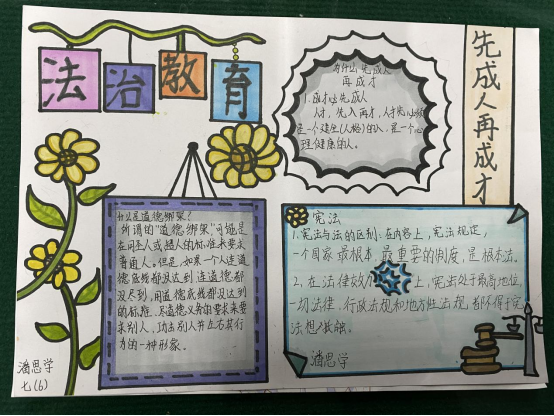 法治教育
先成人再成才
为什么先成人
再成才
1.成才必先成人
人才,先人再才,人才先必须
是一个健全(人格)的人,是一个心
理健康的人。
什么是道德绑架?
所谓的"道德绑架"可能是
在用圣人或超人的标准来要求
普通人。但是,如果一个人连道
德底线都没达到连道德都
没尽到,用道德底线都没达到
的标准,尽道德义务的要求来要
求别人,攻击别人并左右其行
为的一种形象。
宪法
1.宪法与法的区别:在内容上,宪法规定,
一个国家最根本、最重要的制度,是根本法。
2.在法律效力上,宪法处于最高地位,
一切法律,行政法规和地方性法规,都不得于宪
法想抵触。
潘思学
潘思学
七(6)